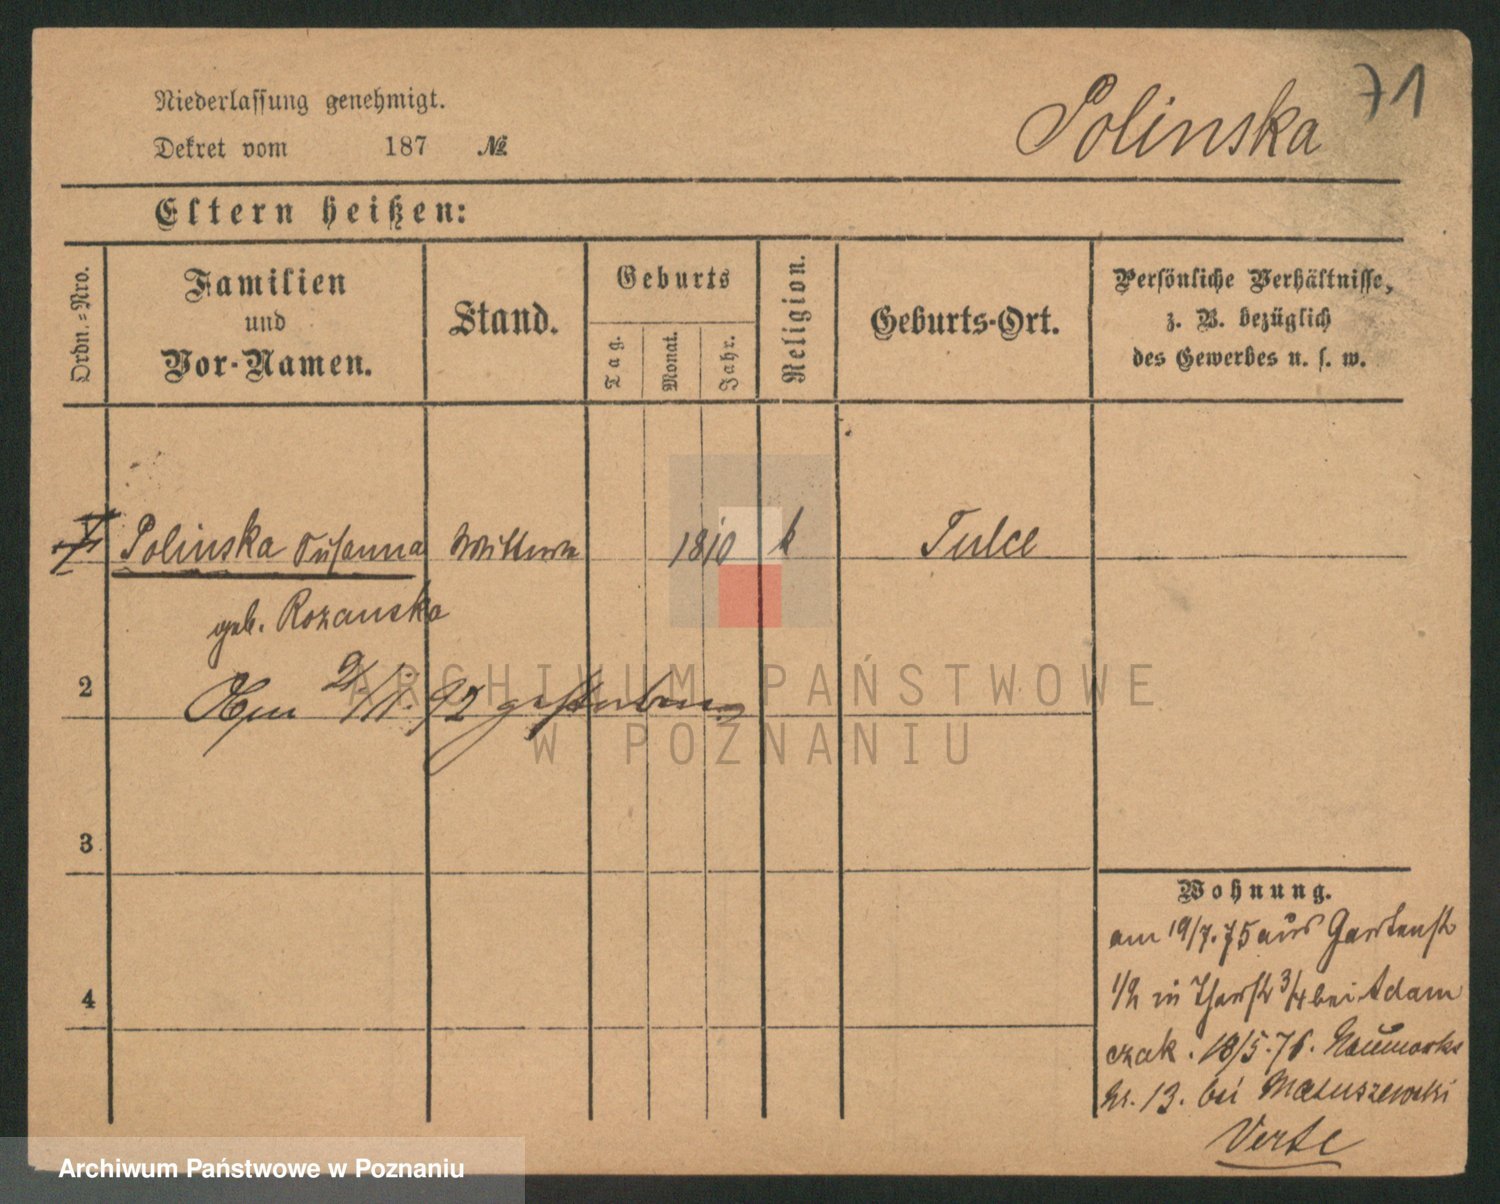 71
Polinska
Niederlassung genehmigt.
Dekret vom 187 №
Eltern heißen:
Ordn.-Nro.
Familien
und
Vor-Namen.
Stand.
Geburts
Tag.
Monat.
Jahr.
Religion.
Geburts-Ort.
Persönliche Verhältnisse,
z. B. bezüglich
des Gewerbes u. s. w.
Polinska Susanna Wittwe 1810 k Tulce
geb. Rozanska
2
Am 2/11. 92 gestorben
3
4
Wohnung.
am 19/7. 75 aus Gartenstr
1/2 in Thorstr 3/4 bei Adam
czak. 18/5. 76. Neumarkt
Nr. 13. bei Matuszewski
Verte
ARCHIWUM PAŃSTWOWE
W POZNANIU
Archiwum Państwowe w Poznaniu